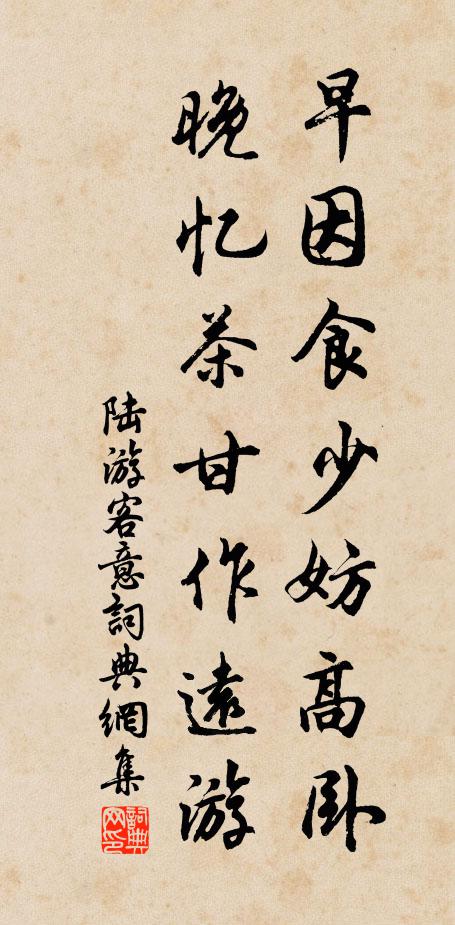 早因食少妨高卧
晚忆茶甘作遠游
陆游客意詞典網集
詞典网印